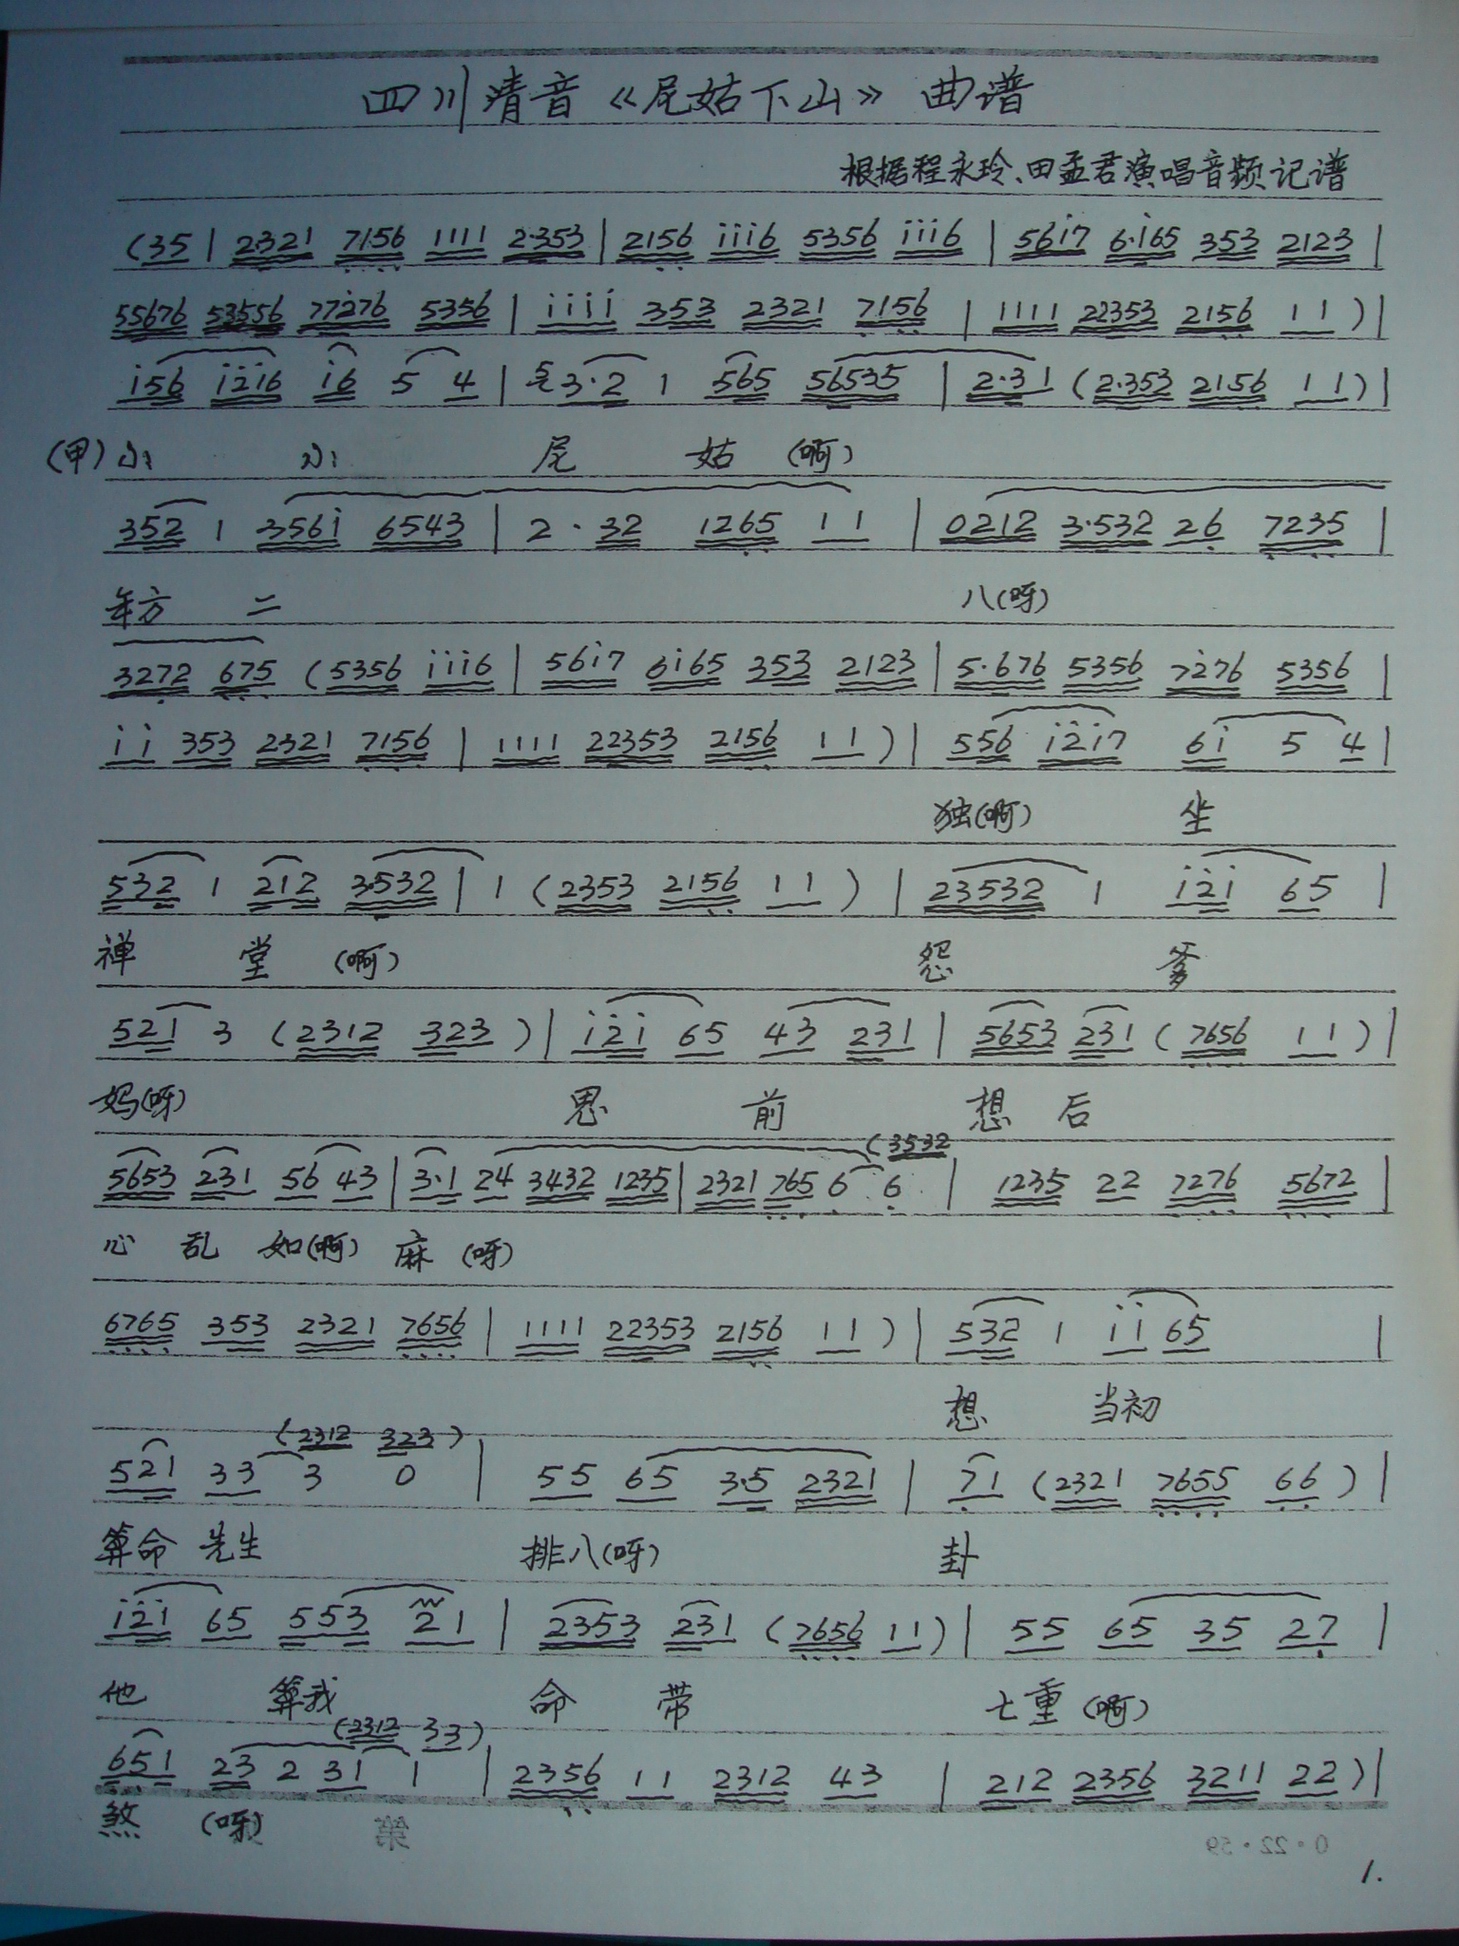 四川清音《尼姑下山》曲谱
根据程永玲、田孟君演唱音频记谱
(35 | 2·321 7156 1111 2·353 | 2156 i̇i̇i̇6 5356 i̇i̇i̇6 | 56i̇7 6·i̇65 353 2123 |
55676 53556 77i̇276 5356 | i̇i̇i̇i̇ 353 2321 7156 | 1111 22353 2156 11 ) |
i̇56 i̇2̇i̇6 i̇6 5 4 | 3·2 1 565 56535 | 2·31 (2·353 2156 11) |
(甲)小 小 尼 姑 (啊)
352 1 356i̇ 6543 | 2 · 32 1265 11 | 0212 3·532 26 7235 |
年方 二 八(呀)
3272 675 (5356 i̇i̇i̇6 | 56i̇7 6i̇65 353 2123 | 5·676 5356 72̇76 5356 |
i̇i̇ 353 2321 7156 | 1111 22353 2156 11 ) | 556 i̇2̇i̇7 6i̇ 5 4 |
独(啊) 坐
532 1 212 3·532 | 1 (2353 2156 11 ) | 23532 1 i̇2̇i̇ 65 |
禅 堂 (啊) 怨 爹
521 3 (2312 323 ) | i̇2̇i̇ 65 43 231 | 5653 231 (7656 11 ) |
妈(呀) 思 前 想 后
(3532
5653 231 56 43 | 3·1 24 3432 1235 | 2321 765 6 6 | 1235 22 7276 5672 |
心 乱 如(啊) 麻 (呀)
6765 353 2321 7656 | 1111 22353 2156 11 ) | 532 1 i̇i̇ 65 |
想 当初
(2312 323 )
521 33 3 0 | 55 65 3·5 2321 | 71 (2321 7655 66 ) |
算命 先生 排八(呀) 卦
i̇2̇i̇ 65 553 21 | 2353 231 (7656 11) | 55 65 35 27 |
他 算我 命 带 七重 (啊)
(2312 33)
651 23 2 31 1 | 2356 11 2312 43 | 212 2356 3211 22 ) |
煞 (呀) 第
0·22·59
1.